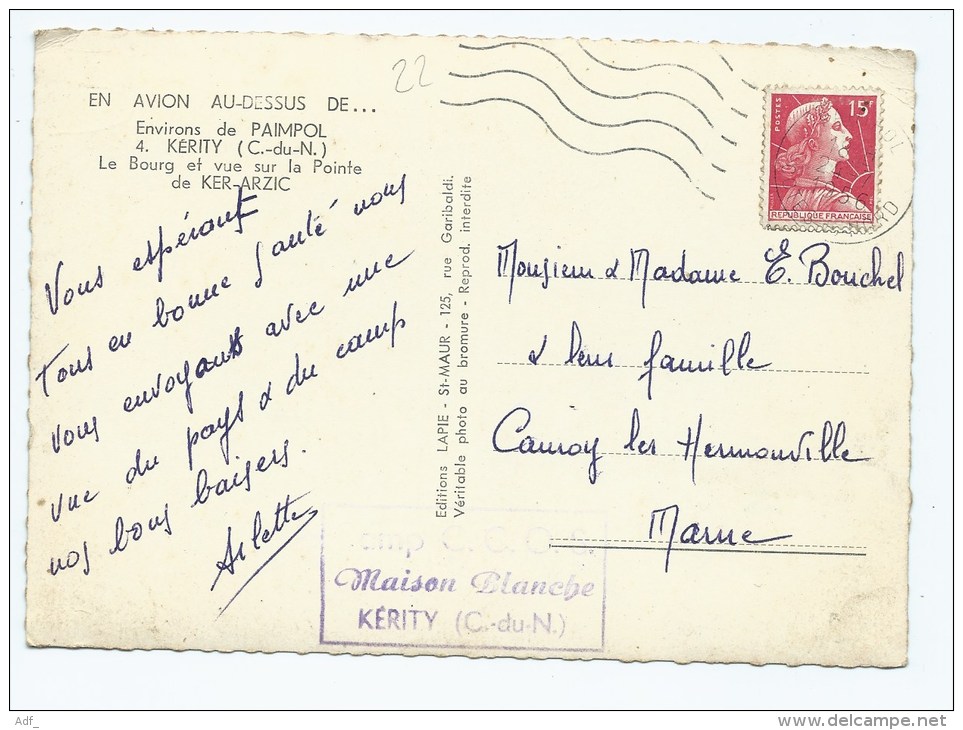 22
EN AVION AU-DESSUS DE...
Environs de PAIMPOL
4. KÉRITY (C.-du-N.)
Le Bourg et vue sur la Pointe
de KER-ARZIC
Vous espérant
Tous en bonne Santé nous
vous envoyons avec une
vue du pays & du camp
nos bons baisers.
Arlette
Editions LAPIE - St-MAUR - 125, rue Garibaldi.
Véritable photo au bromure - Reprod. interdite
POSTES
15F
REPUBLIQUE FRANÇAISE
Monsieur & Madame E. Bouchel
& leur famille
Cauroy les Hermonville
Marne
Maison Blanche
KÉRITY (C.-du-N.)
Adf_
www.delcampe.net